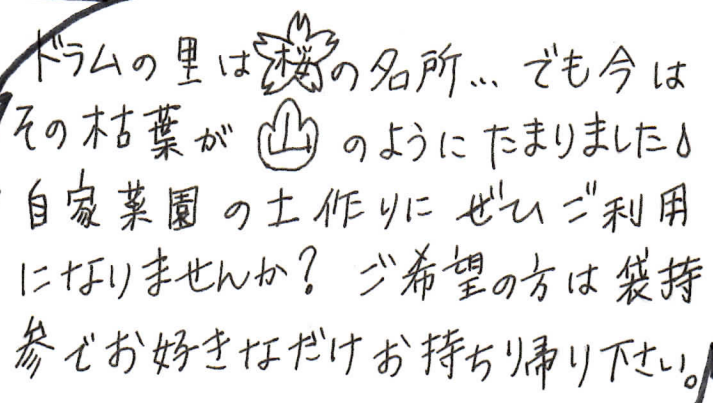 ドラムの里は桜の名所…でも今は
その枯葉が山のようにたまりました
自家菜園の土作りにぜひご利用
になりませんか？ご希望の方は袋持
参でお好きなだけお持ち帰り下さい。